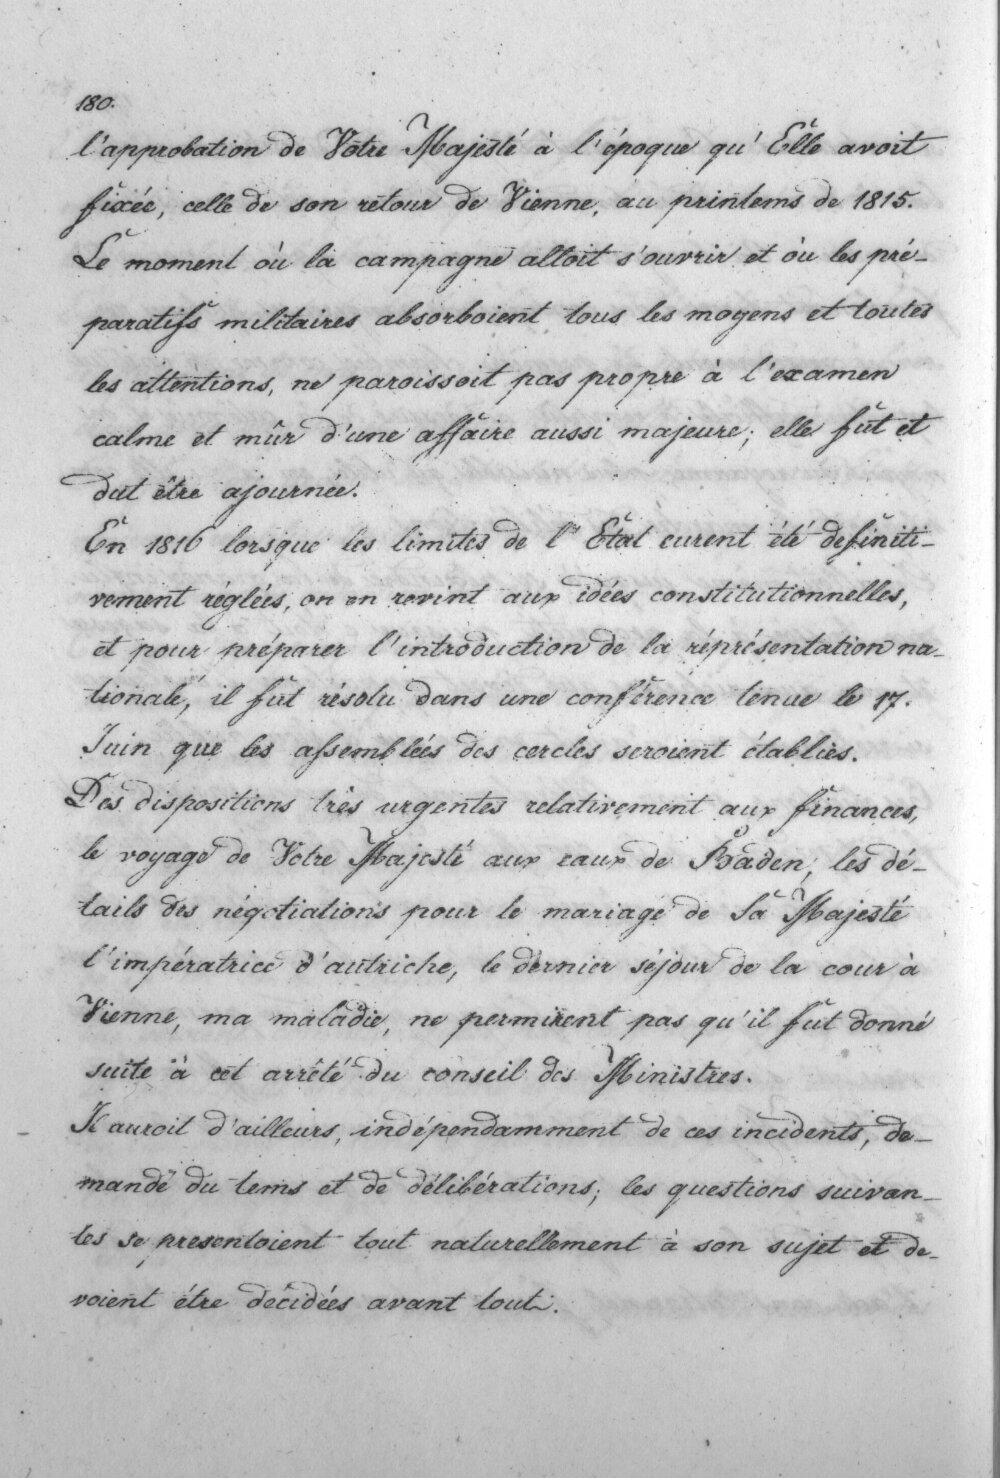 180.
l'approbation de Votre Majesté à l'époque qu'Elle avoit
fixée, celle de son retour de Vienne, au printems de 1815.
Le moment où la campagne alloit s'ouvrir et où les pré-
paratifs militaires absorboient tous les moyens et toutes
les attentions, ne paroissoit pas propre à l'examen
calme et mûr d'une affaire aussi majeure; elle fut et
dut être ajournée.
En 1816 lorsque les limites de l'Etat eurent été definiti-
vement réglées, on en revint aux idées constitutionnelles,
et pour préparer l'introduction de la réprésentation na-
tionale, il fut résolu dans une conférence tenue le 17.
Juin que les assemblées des cercles seroient établies.
Des dispositions très urgentes relativement aux finances,
le voyage de Votre Majesté aux eaux de Baden, les dé-
tails des négotiations pour le mariage de Sa Majesté
l'impératrice d'autriche, le dernier séjour de la cour à
Vienne, ma maladie, ne permirent pas qu'il fut donné
suite à cet arrêté du conseil des Ministres.
Il auroit d'ailleurs, indépendamment de ces incidents, de-
mandé du tems et de délibérations; les questions suivan-
tes se presentoient tout naturellement à son sujet et de-
voient être décidées avant tout.